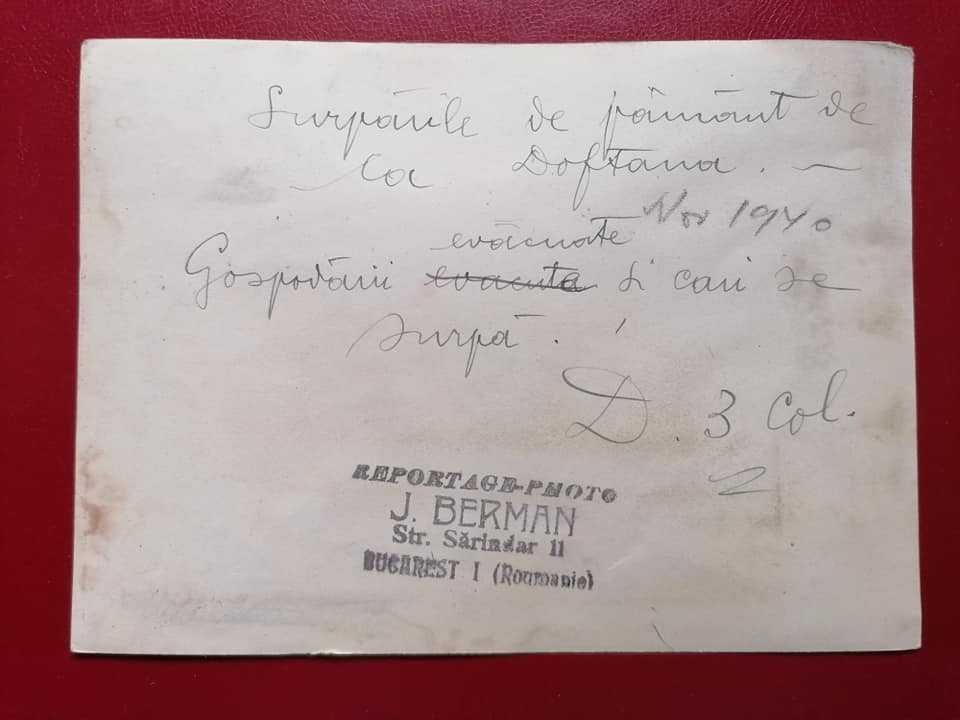 Surpările de pământ de
la Doftana. —
Nov 1940
evăcuate
Gospodării evacuta și cari se
surpă.
D. 3 col.
2
REPORTAGE-PHOTO
J. BERMAN
Str. Sărindar 11
BUCAREST I (Roumanie)